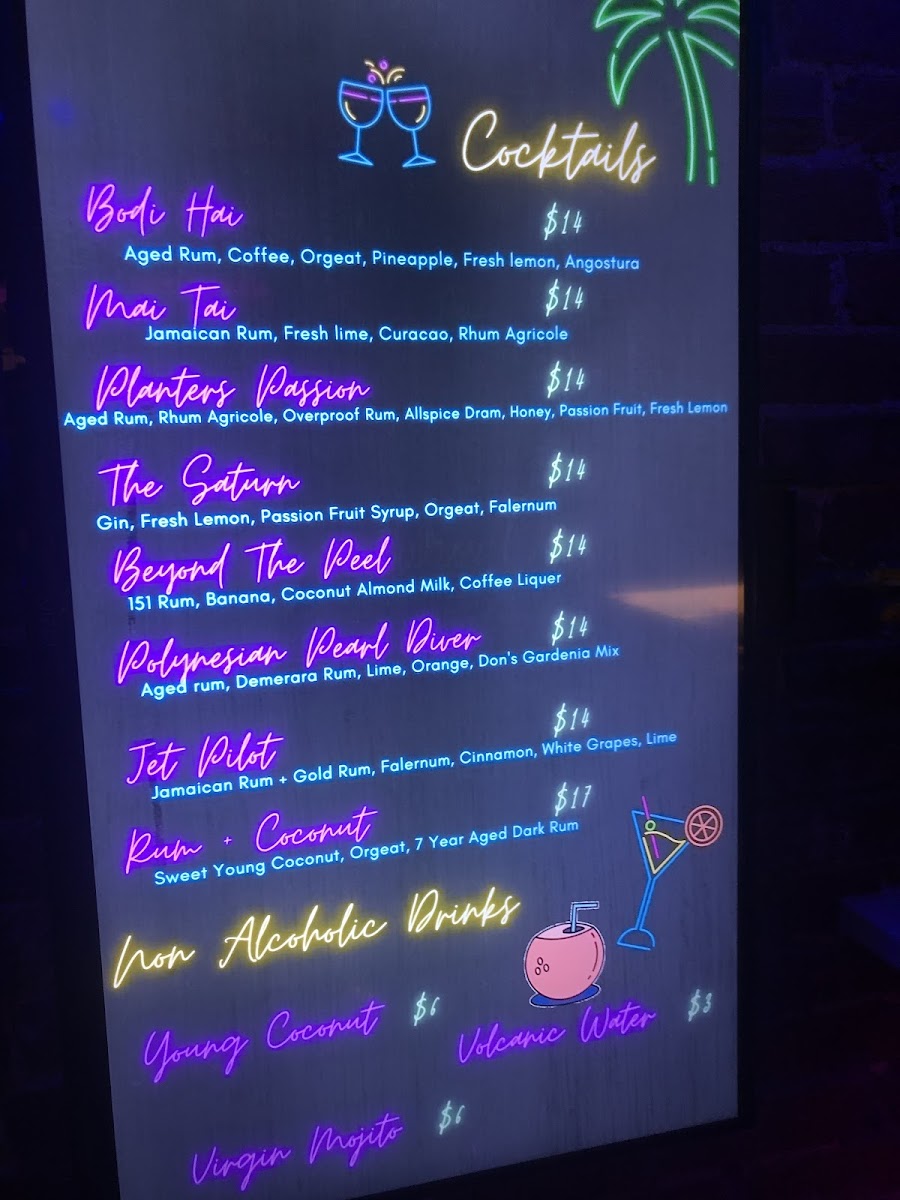 Cocktails
Bodi Hai $14
Aged Rum, Coffee, Orgeat, Pineapple, Fresh lemon, Angostura
Mai Tai $14
Jamaican Rum, Fresh lime, Curacao, Rhum Agricole
Planters Passion $14
Aged Rum, Rhum Agricole, Overproof Rum, Allspice Dram, Honey, Passion Fruit, Fresh Lemon
The Saturn $14
Gin, Fresh Lemon, Passion Fruit Syrup, Orgeat, Falernum
Beyond The Peel $14
151 Rum, Banana, Coconut Almond Milk, Coffee Liquer
Polynesian Pearl Diver $14
Aged rum, Demerara Rum, Lime, Orange, Don's Gardenia Mix
Jet Pilot $14
Jamaican Rum + Gold Rum, Falernum, Cinnamon, White Grapes, Lime
Rum + Coconut $17
Sweet Young Coconut, Orgeat, 7 Year Aged Dark Rum
Non Alcoholic Drinks
Young Coconut $6
Volcanic Water $3
Virgin Mojito $6